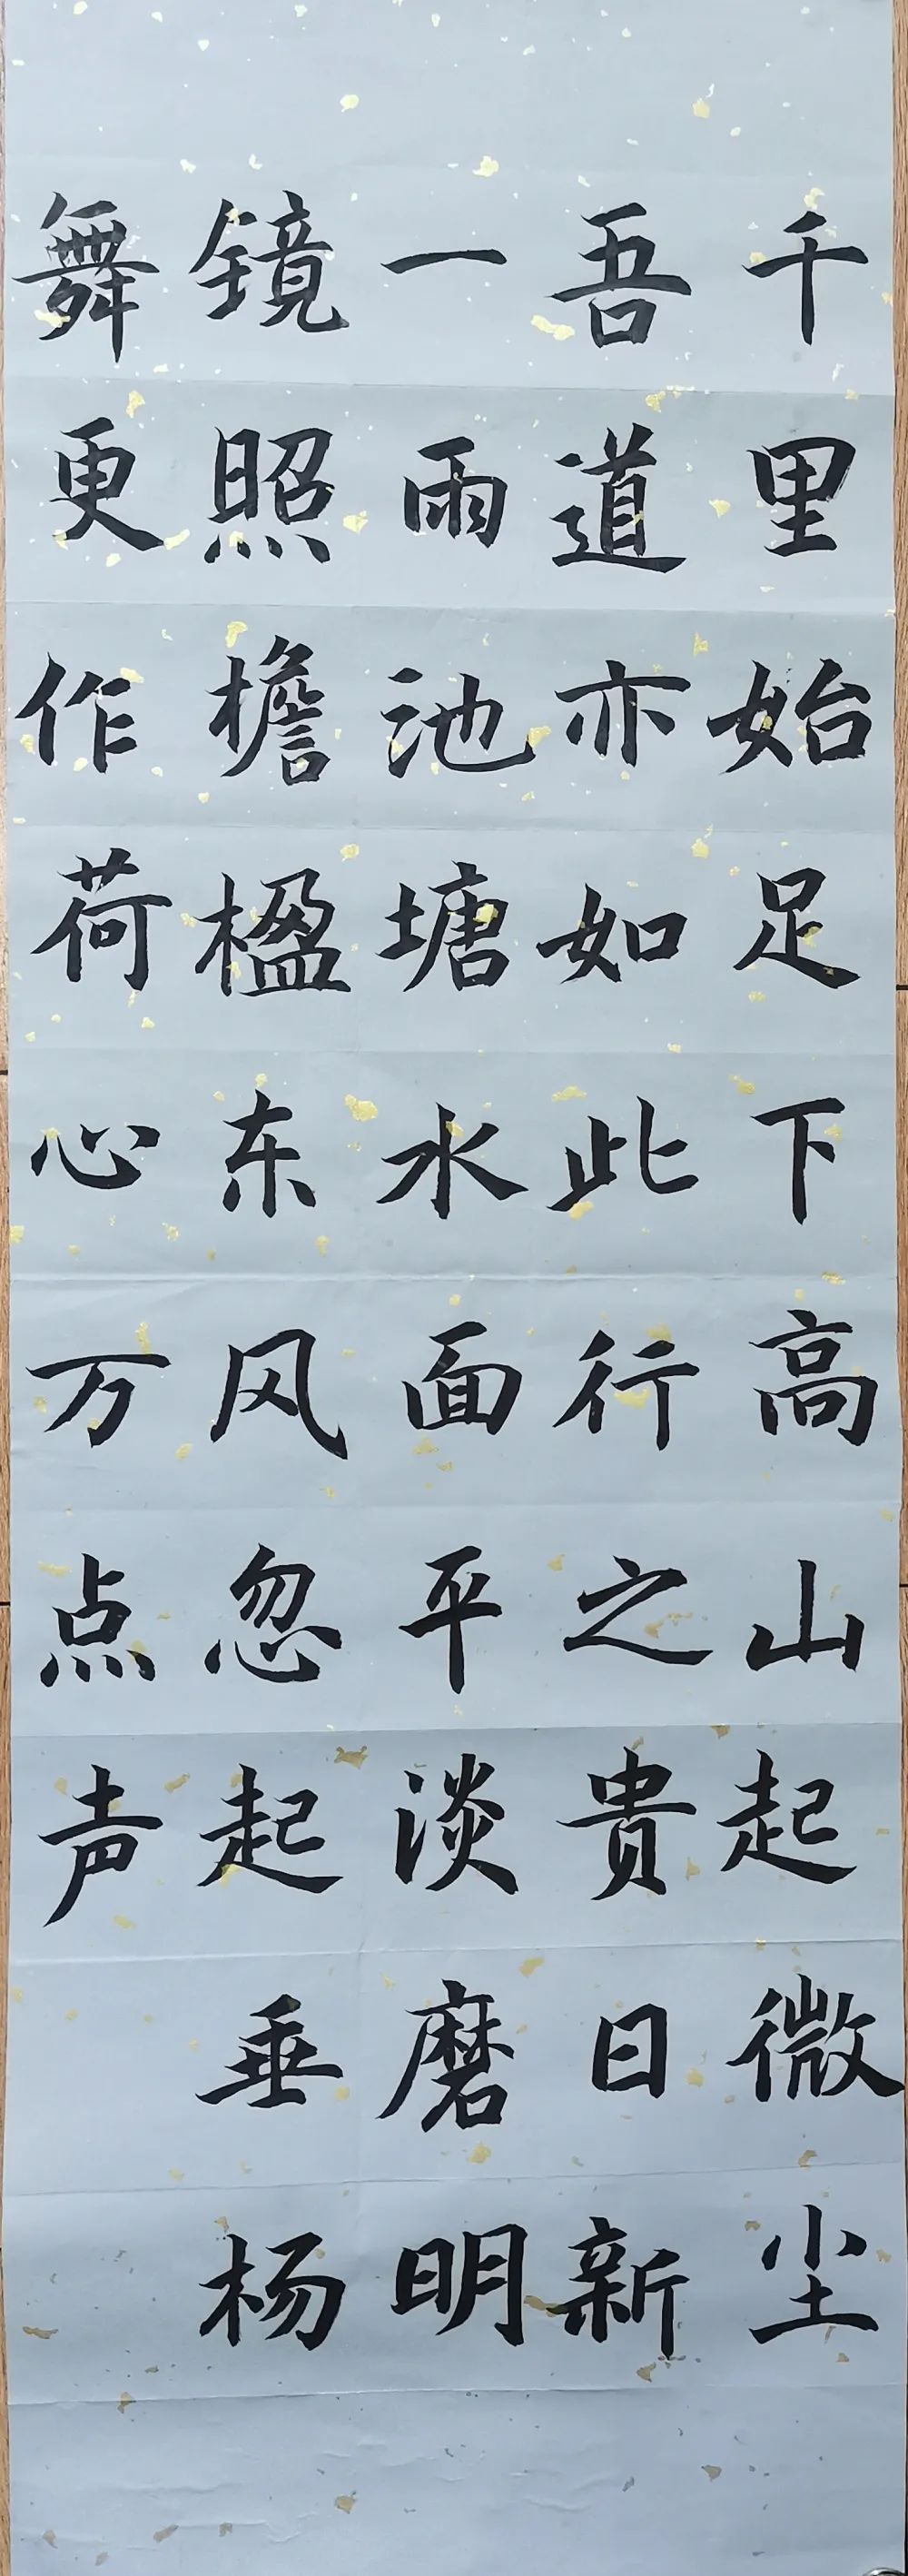 千里始足下高山起微尘
吾道亦如此行之贵日新
一雨池塘水面平淡磨明
镜照檐楹东风忽起垂杨
舞更作荷心万点声